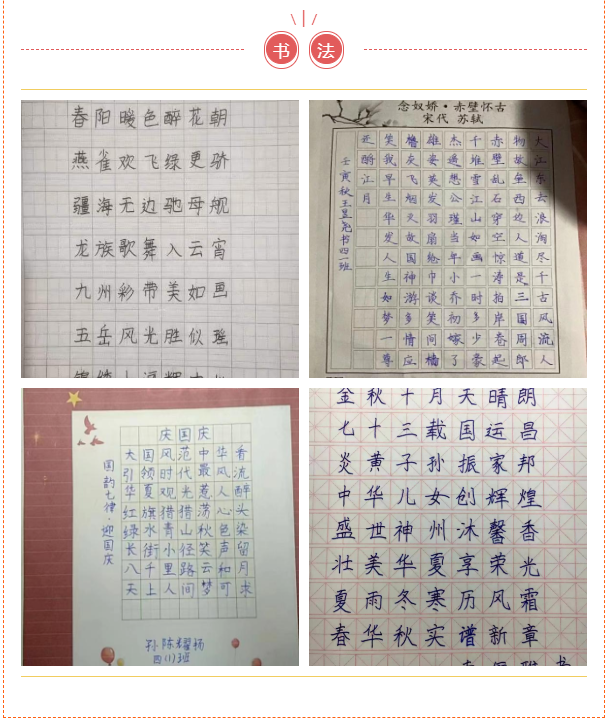 书 法
春阳暖色醉花朝
燕雀欢飞绿更骄
疆海无边驰母舰
龙族歌舞入云宵
九州彩带美如画
五岳风光胜似瑶
念奴娇·赤壁怀古
宋代 苏轼
大江东去浪淘尽千古风流人
物故垒西边人道是三国周郎
赤壁乱石穿空惊涛拍岸卷起
千堆雪江山如画一时多少豪
杰遥想公瑾当年小乔初嫁了
雄姿英发羽扇纶巾谈笑间樯
橹灰飞烟灭故国神游多情应
笑我早生华发人生如梦一尊
还酹江月
壬寅秋王昱尧书四一班
庆国庆
大国风范中华看
引领时代最风流
华夏观光惹人醉
红旗猎猎荡心头
绿水青山秋色染
长街小径笑声留
八千里路云和月
天上人间梦可求
国韵七律 迎国庆
孙陈耀杨
四(1)班
金秋十月天晴朗
七十三载国运昌
炎黄子孙振家邦
中华儿女创辉煌
盛世神州沐馨香
壮美华夏享荣光
夏雨冬寒历风霜
春华秋实谱新章